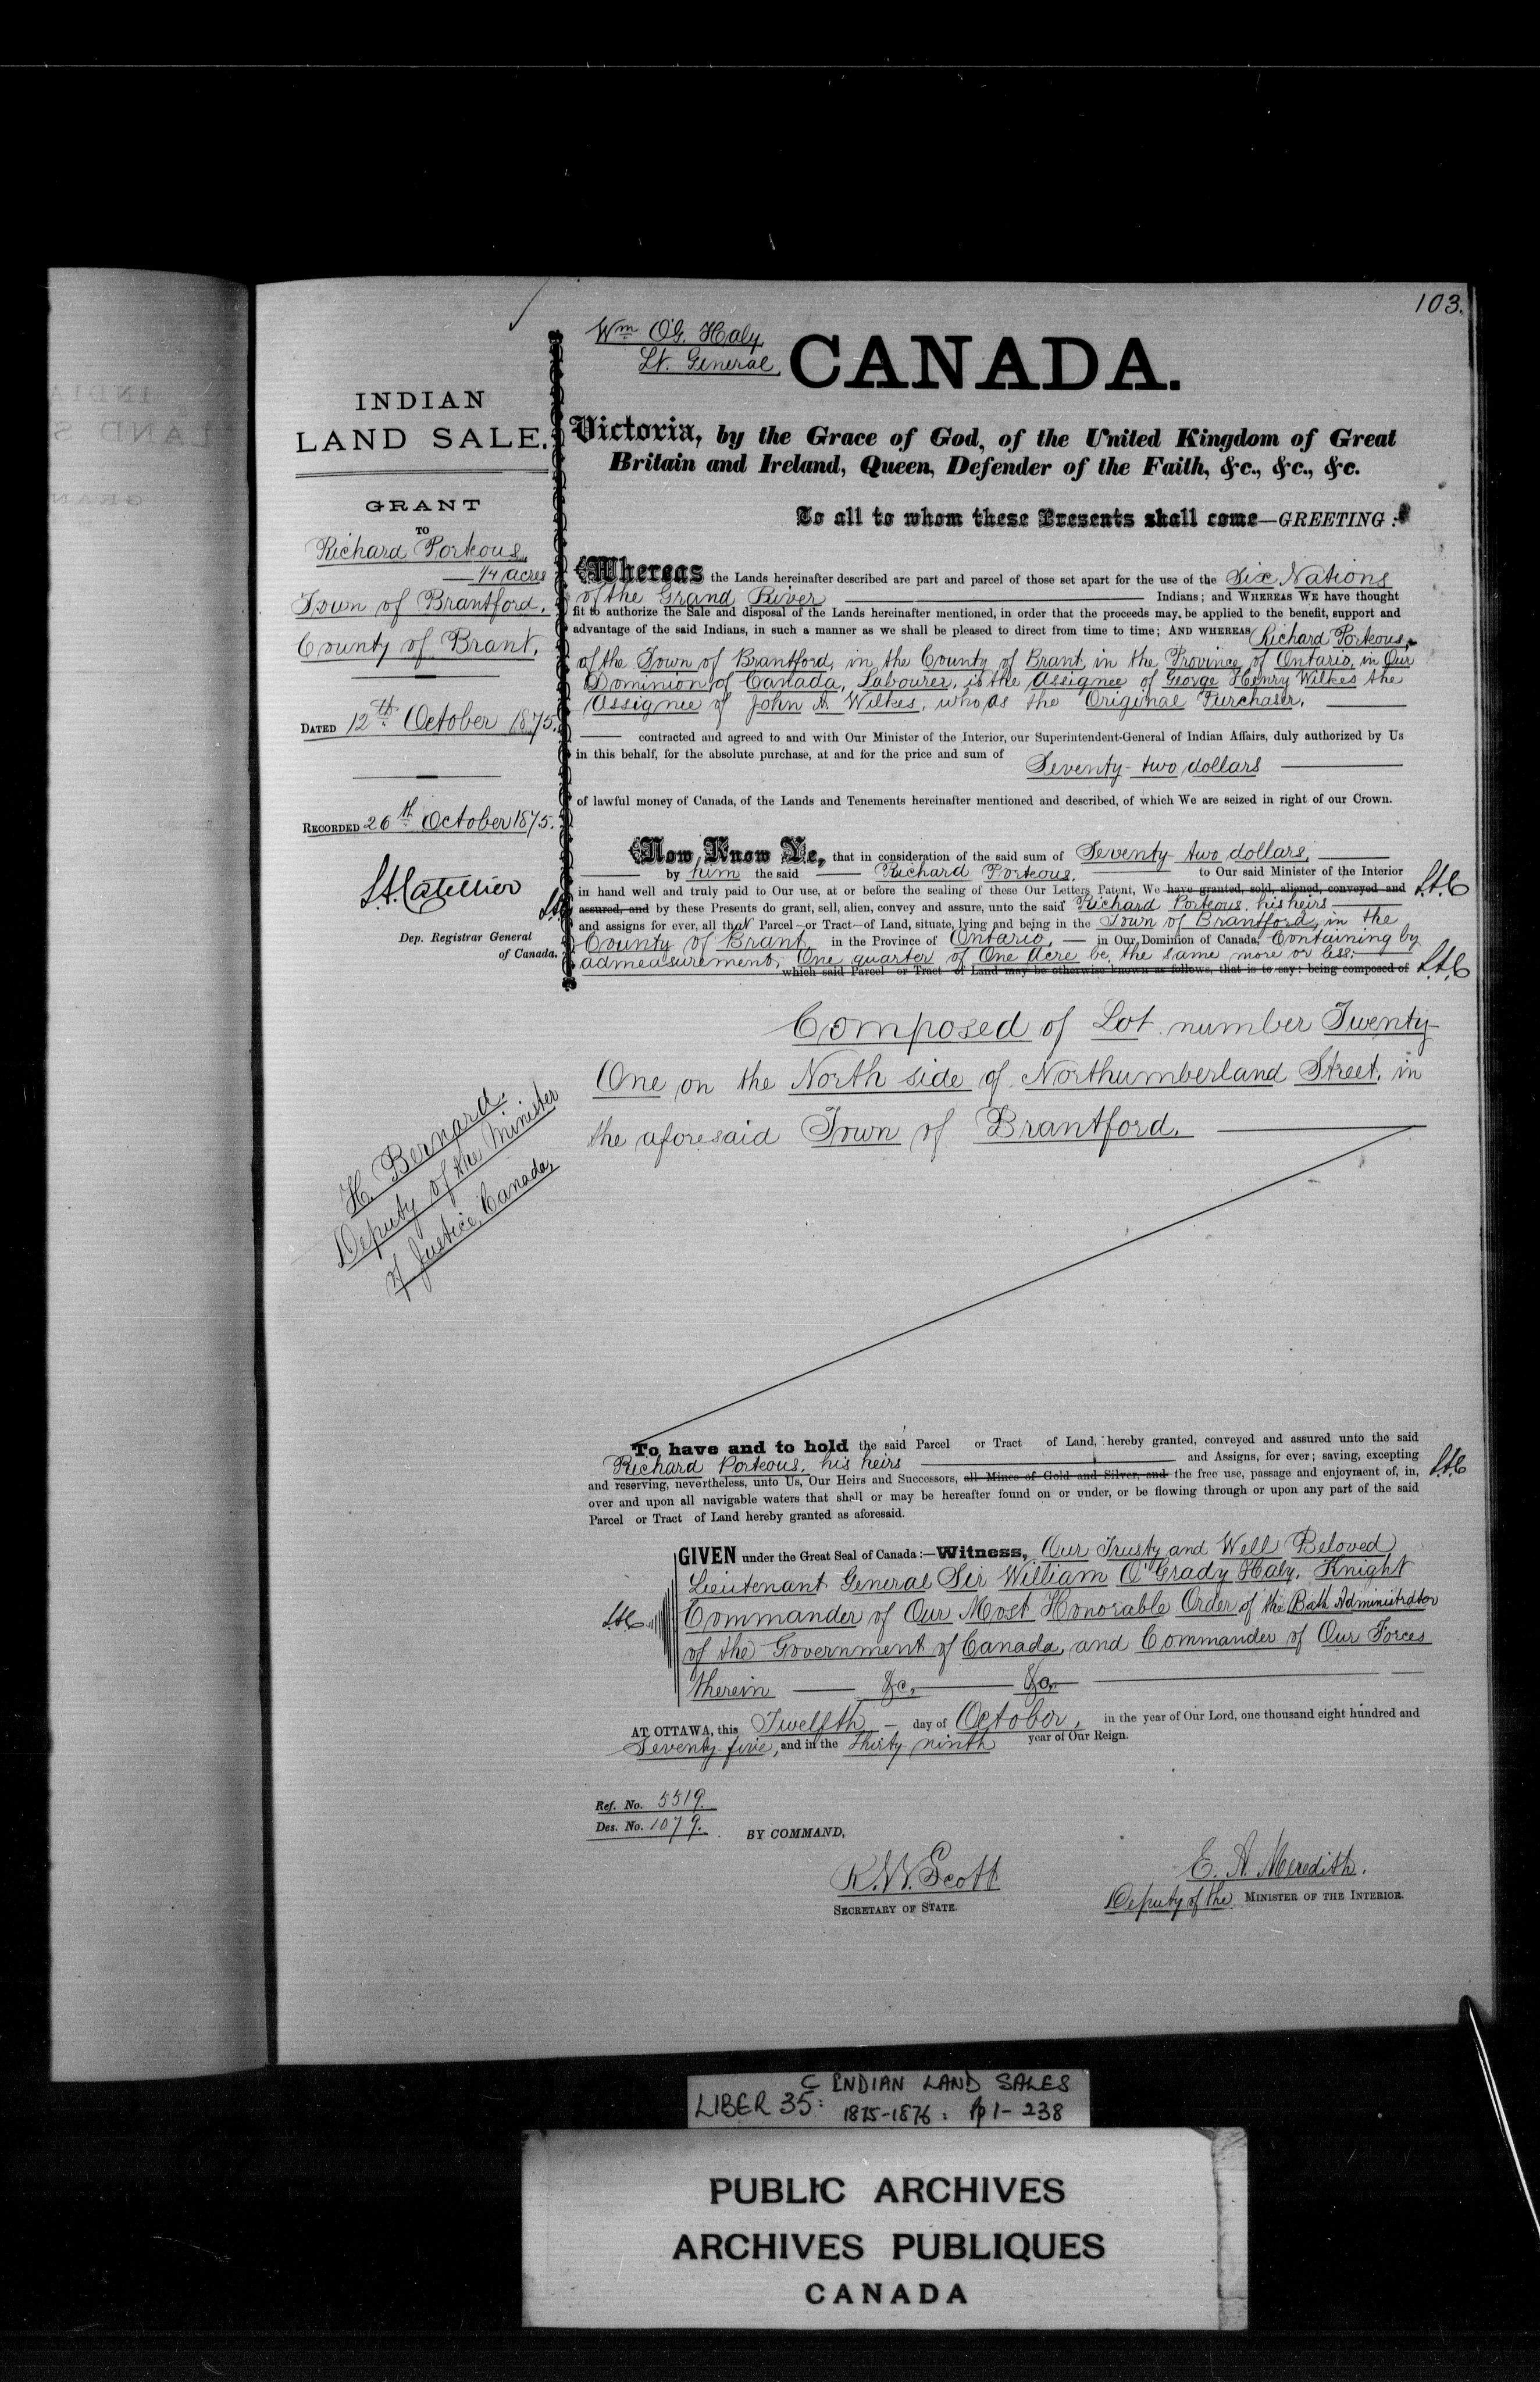 103.
Wm O'G. Haly,
Lt. General,
CANADA.
INDIAN
LAND SALE.
GRANT
TO
Richard Porteous,
1/4 acres
Town of Brantford,
County of Brant.
DATED 12th October 1875.
RECORDED 26th October 1875.
L.A. Catellier
Dep. Registrar General
of Canada.
H. Bernard.
Deputy of the Minister
of Justice, Canada,
Victoria, by the Grace of God, of the United Kingdom of Great
Britain and Ireland, Queen, Defender of the Faith, &c., &c., &c.
To all to whom these Presents shall come—GREETING:
Whereas the Lands hereinafter described are part and parcel of those set apart for the use of the Six Nations
of the Grand River Indians; and WHEREAS WE have thought
fit to authorize the Sale and disposal of the Lands hereinafter mentioned, in order that the proceeds may be applied to the benefit, support and
advantage of the said Indians, in such a manner as we shall be pleased to direct from time to time; AND WHEREAS Richard Porteous,
of the Town of Brantford, in the County of Brant, in the Province of Ontario, in Our
Dominion of Canada, Labourer, is the Assignee of George Henry Wilkes the
Assignee of John A. Wilkes, who as the Original Purchaser,
contracted and agreed to and with Our Minister of the Interior, our Superintendent-General of Indian Affairs, duly authorized by Us
in this behalf, for the absolute purchase, at and for the price and sum of
Seventy-two dollars
of lawful money of Canada, of the Lands and Tenements hereinafter mentioned and described, of which We are seized in right of our Crown.
Now Know Ye, that in consideration of the said sum of Seventy-two dollars,
by him the said Richard Porteous, to Our said Minister of the Interior
in hand well and truly paid to Our use, at or before the sealing of these Our Letters Patent, We have granted, sold, aliened, conveyed and L.A.C
L.A. assured, and by these Presents do grant, sell, alien, convey and assure, unto the said Richard Porteous, his heirs
and assigns for ever, all that Parcel—or Tract—of Land, situate, lying and being in the Town of Brantford, in the
County of Brant, in the Province of Ontario, in Our Dominion of Canada, Containing by
admeasurement, One quarter of One Acre be the same more or less.
which said Parcel or Tract of Land may be otherwise known as follows, that is to say: being composed of L.A.C
Composed of Lot number Twenty-
One on the North side of Northumberland Street, in
the aforesaid Town of Brantford.
To have and to hold the said Parcel or Tract of Land, hereby granted, conveyed and assured unto the said
Richard Porteous, his heirs and Assigns, for ever; saving, excepting
and reserving, nevertheless, unto Us, Our Heirs and Successors, all Mines of Gold and Silver, and the free use, passage and enjoyment of, in, L.A.C
over and upon all navigable waters that shall or may be hereafter found on or under, or be flowing through or upon any part of the said
Parcel or Tract of Land hereby granted as aforesaid.
GIVEN under the Great Seal of Canada:—Witness, Our Trusty and Well Beloved
Lieutenant General Sir William O'Grady Haly, Knight
L.A.C Commander of Our Most Honorable Order of the Bath Administrator
of the Government of Canada, and Commander of Our Forces
therein &c, &c,
AT OTTAWA, this Twelfth day of October, in the year of Our Lord, one thousand eight hundred and
Seventy-five, and in the thirty ninth year of Our Reign.
Ref. No. 5519.
Des. No. 1079.
BY COMMAND,
R.W. Scott
SECRETARY OF STATE.
E. A. Meredith.
Deputy of the MINISTER OF THE INTERIOR.
C INDIAN LAND SALES
LIBER 35: 1875-1876: pp 1-238
PUBLIC ARCHIVES
ARCHIVES PUBLIQUES
CANADA